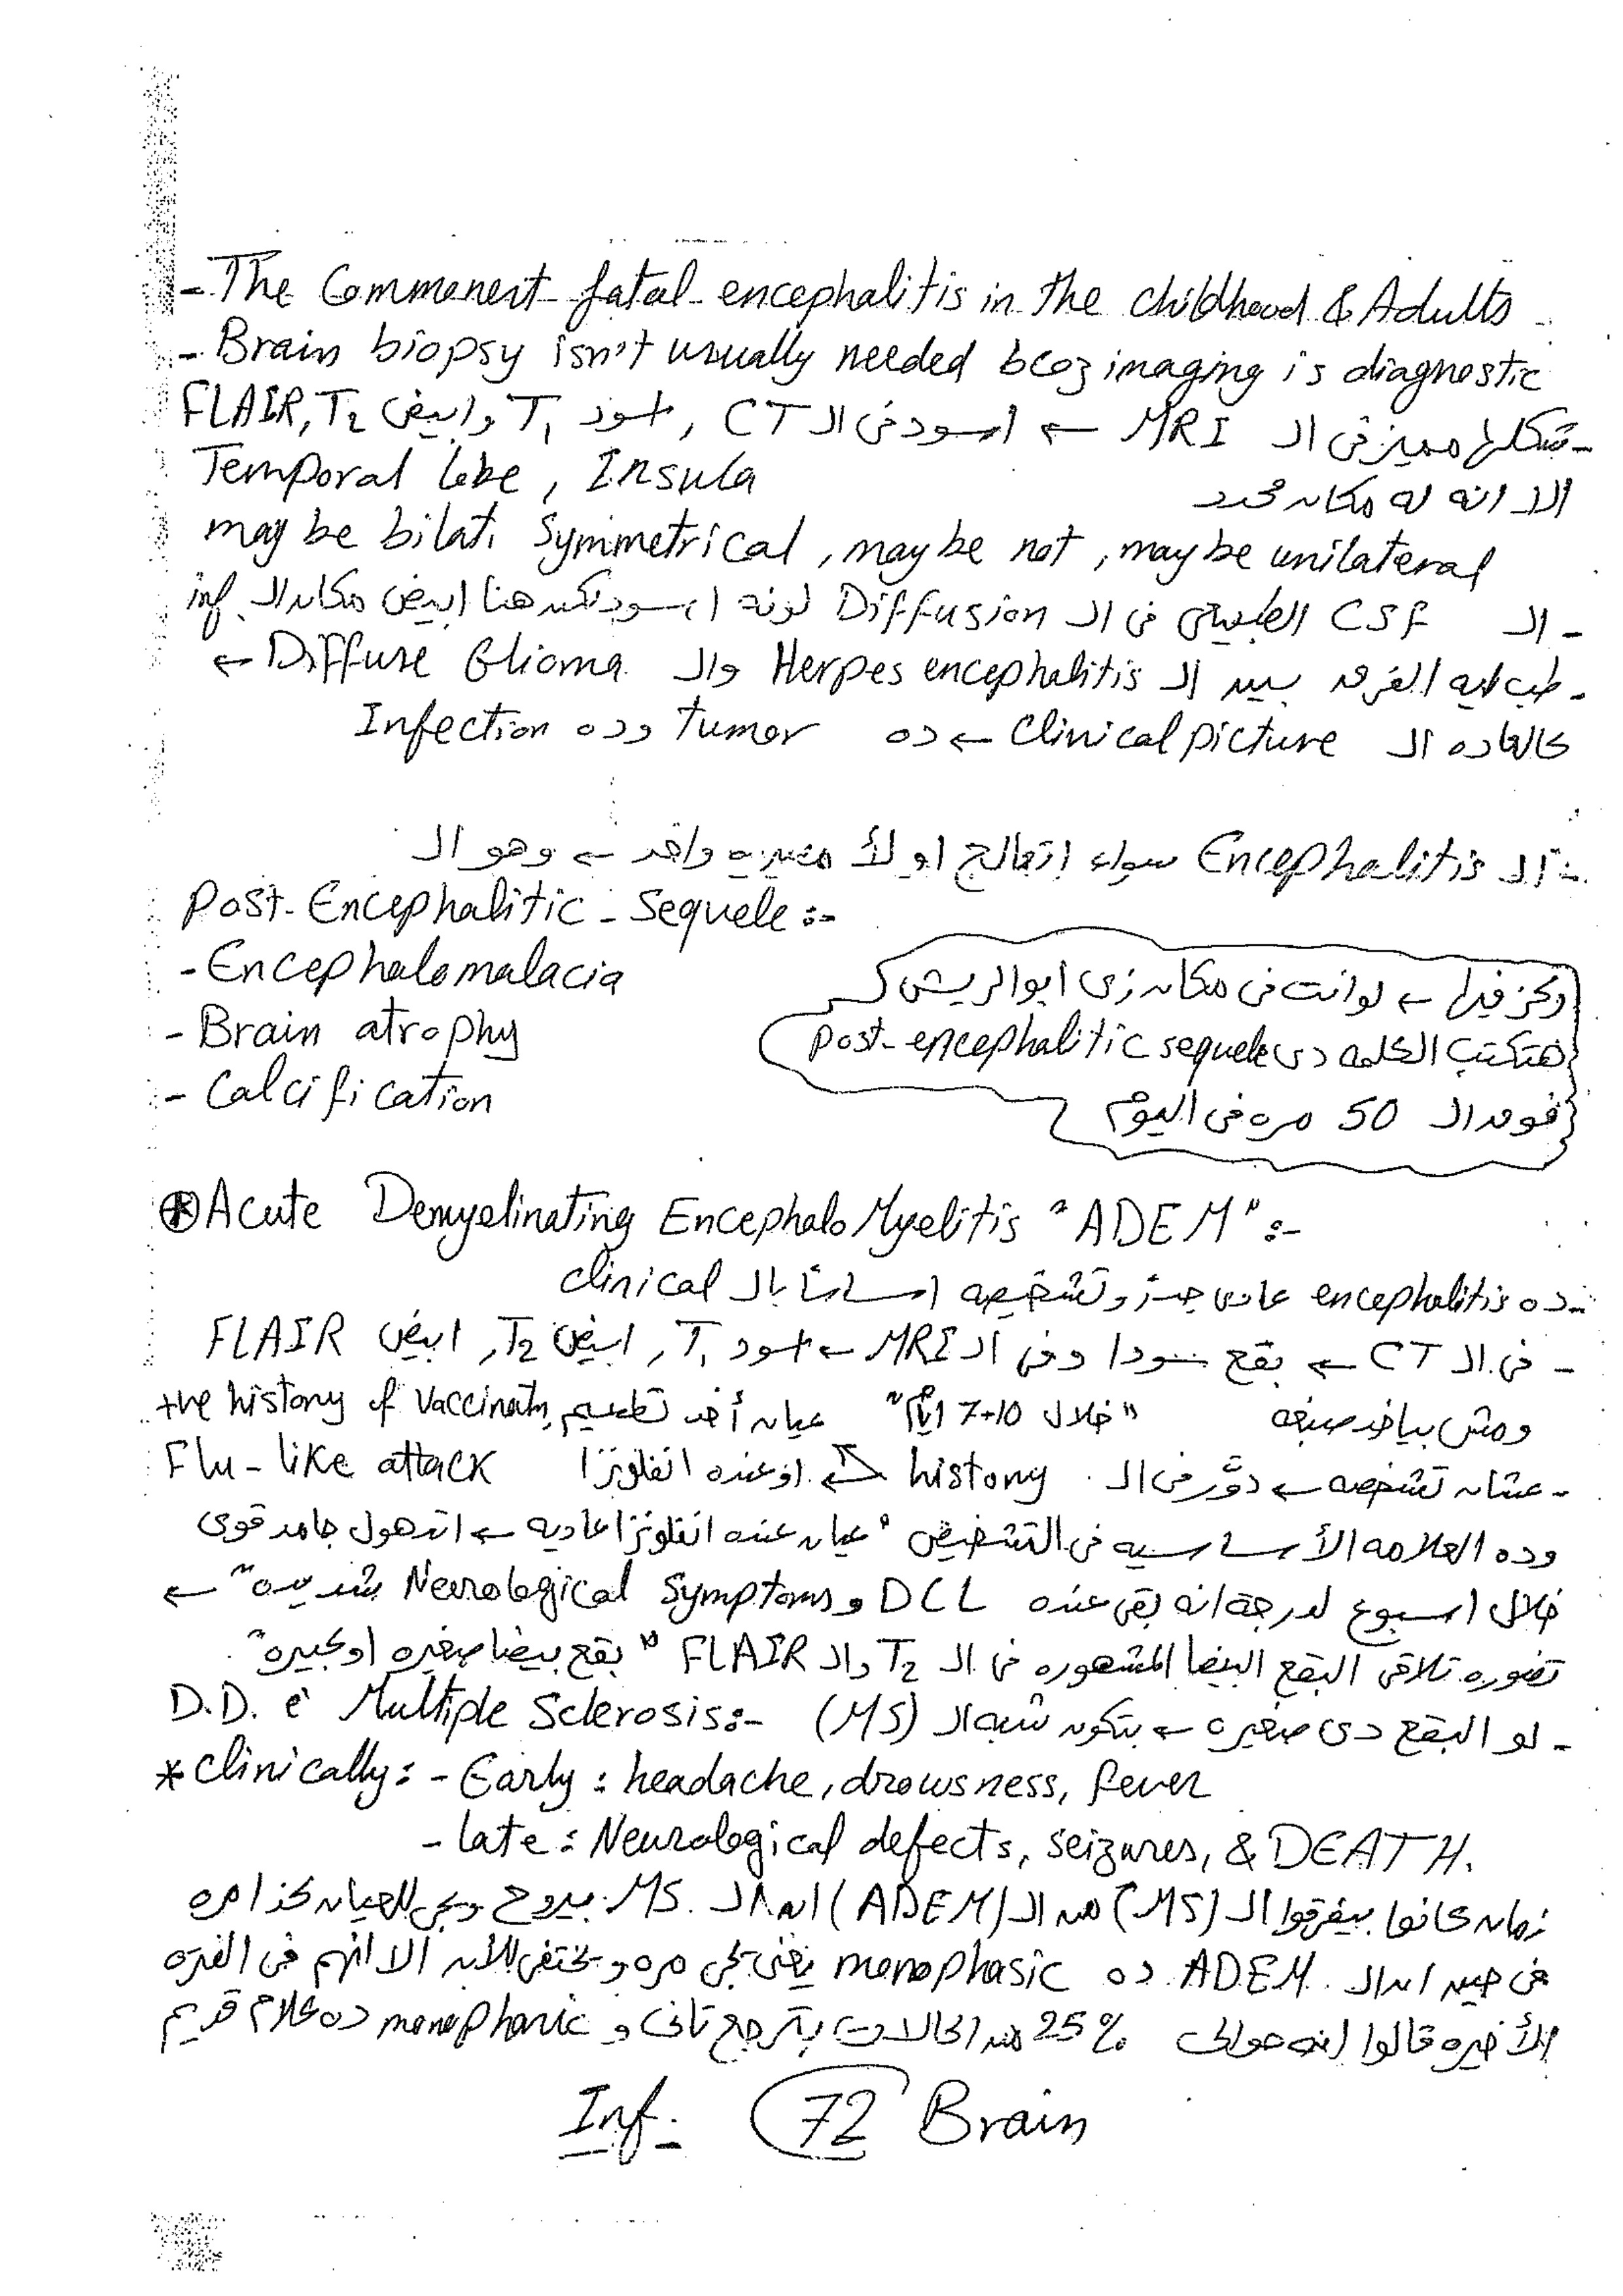 - The Commonest fatal encephalitis in the childhood & Adults
- Brain biopsy isn't usually needed bcoz imaging is diagnostic
- شكلها مميز فى ال MRI ← اسود فى ال CT , اسود T1 وابيض FLAIR, T2
الا انه له مكان محدد Temporal lobe , Insula
may be bilat. symmetrical , may be not , may be unilateral
- ال CSF الطبيعى فى ال Diffusion لونه اسود لكن هنا ابيض مكان ال inf.
- طب ايه الفرق بين ال Herpes encephalitis وال Diffuse Glioma ←
كالعاده ال Clinical picture ← ده tumor وده Infection
- ال Encephalitis سواء اتعالج او لأ مصيره واحد ← وهو ال
Post-Encephalitic-Sequele :-
- Encephalomalacia
- Brain atrophy
- Calcification
ركز فيها ← لو انت فى مكان زى ابو الريش ك
هتكتب الكلمه دى post-encephalitic sequele
فوق ال 50 مره فى اليوم
* Acute Demyelinating EncephaloMyelitis "ADEM" :-
- ده encephalitis عادى جدا وتشخيصه اساسا بال clinical
- فى ال CT ← بقع سودا وفى ال MRI ← اسود T1 , ابيض T2 , ابيض FLAIR
ومش بياخد صبغه "خلال 7-10 ايام" عيان أخد تطعيم +ve history of vaccinatn,
- عشان تشخصه ← دوّر فى ال history ← او عنده انفلونزا Flu-like attack
وده العلامه الأساسيه فى التشخيص "عيان عنده انفلونزا عاديه ← اتدهول جامد قوى
خلال اسبوع لدرجة انه بقى عنده DCL و Neurological symptoms شديده" ←
تصوره تلاقى البقع البيضا المشهوره فى ال T2 وال FLAIR "بقع بيضا صغيره او كبيره"
- لو البقع دى صغيره ← بتكون شبه ال (MS) D.D. è Multiple Sclerosis :-
* clinically : - Early : headache, drowsness, fever
- late : Neurological defects, seizures, & DEATH.
زمان كانوا بيفرقوا ال (MS) من ال (ADEM) ان ال MS. بيروح ويجى للعيان كذا مره
فى حين ان ال ADEM. ده monophasic يعنى يجى مره ويختفى للأبد الا انهم فى الفتره
الأخيره قالوا إنه حوالى 25% من الحالات بترجع تانى و monophasic ده كلام قديم
Inf. 72 Brain